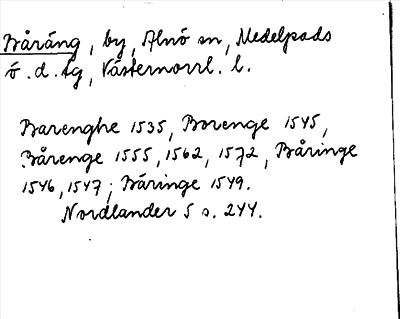 Båräng, by, Alnö sn, Medelpads
ö. d. tg, Västernorrl. l.
Barenghe 1535, Borenge 1545,
Bårenge 1555, 1562, 1572, Båringe
1546, 1547; Båringe 1549.
Nordlander 5 s. 244.